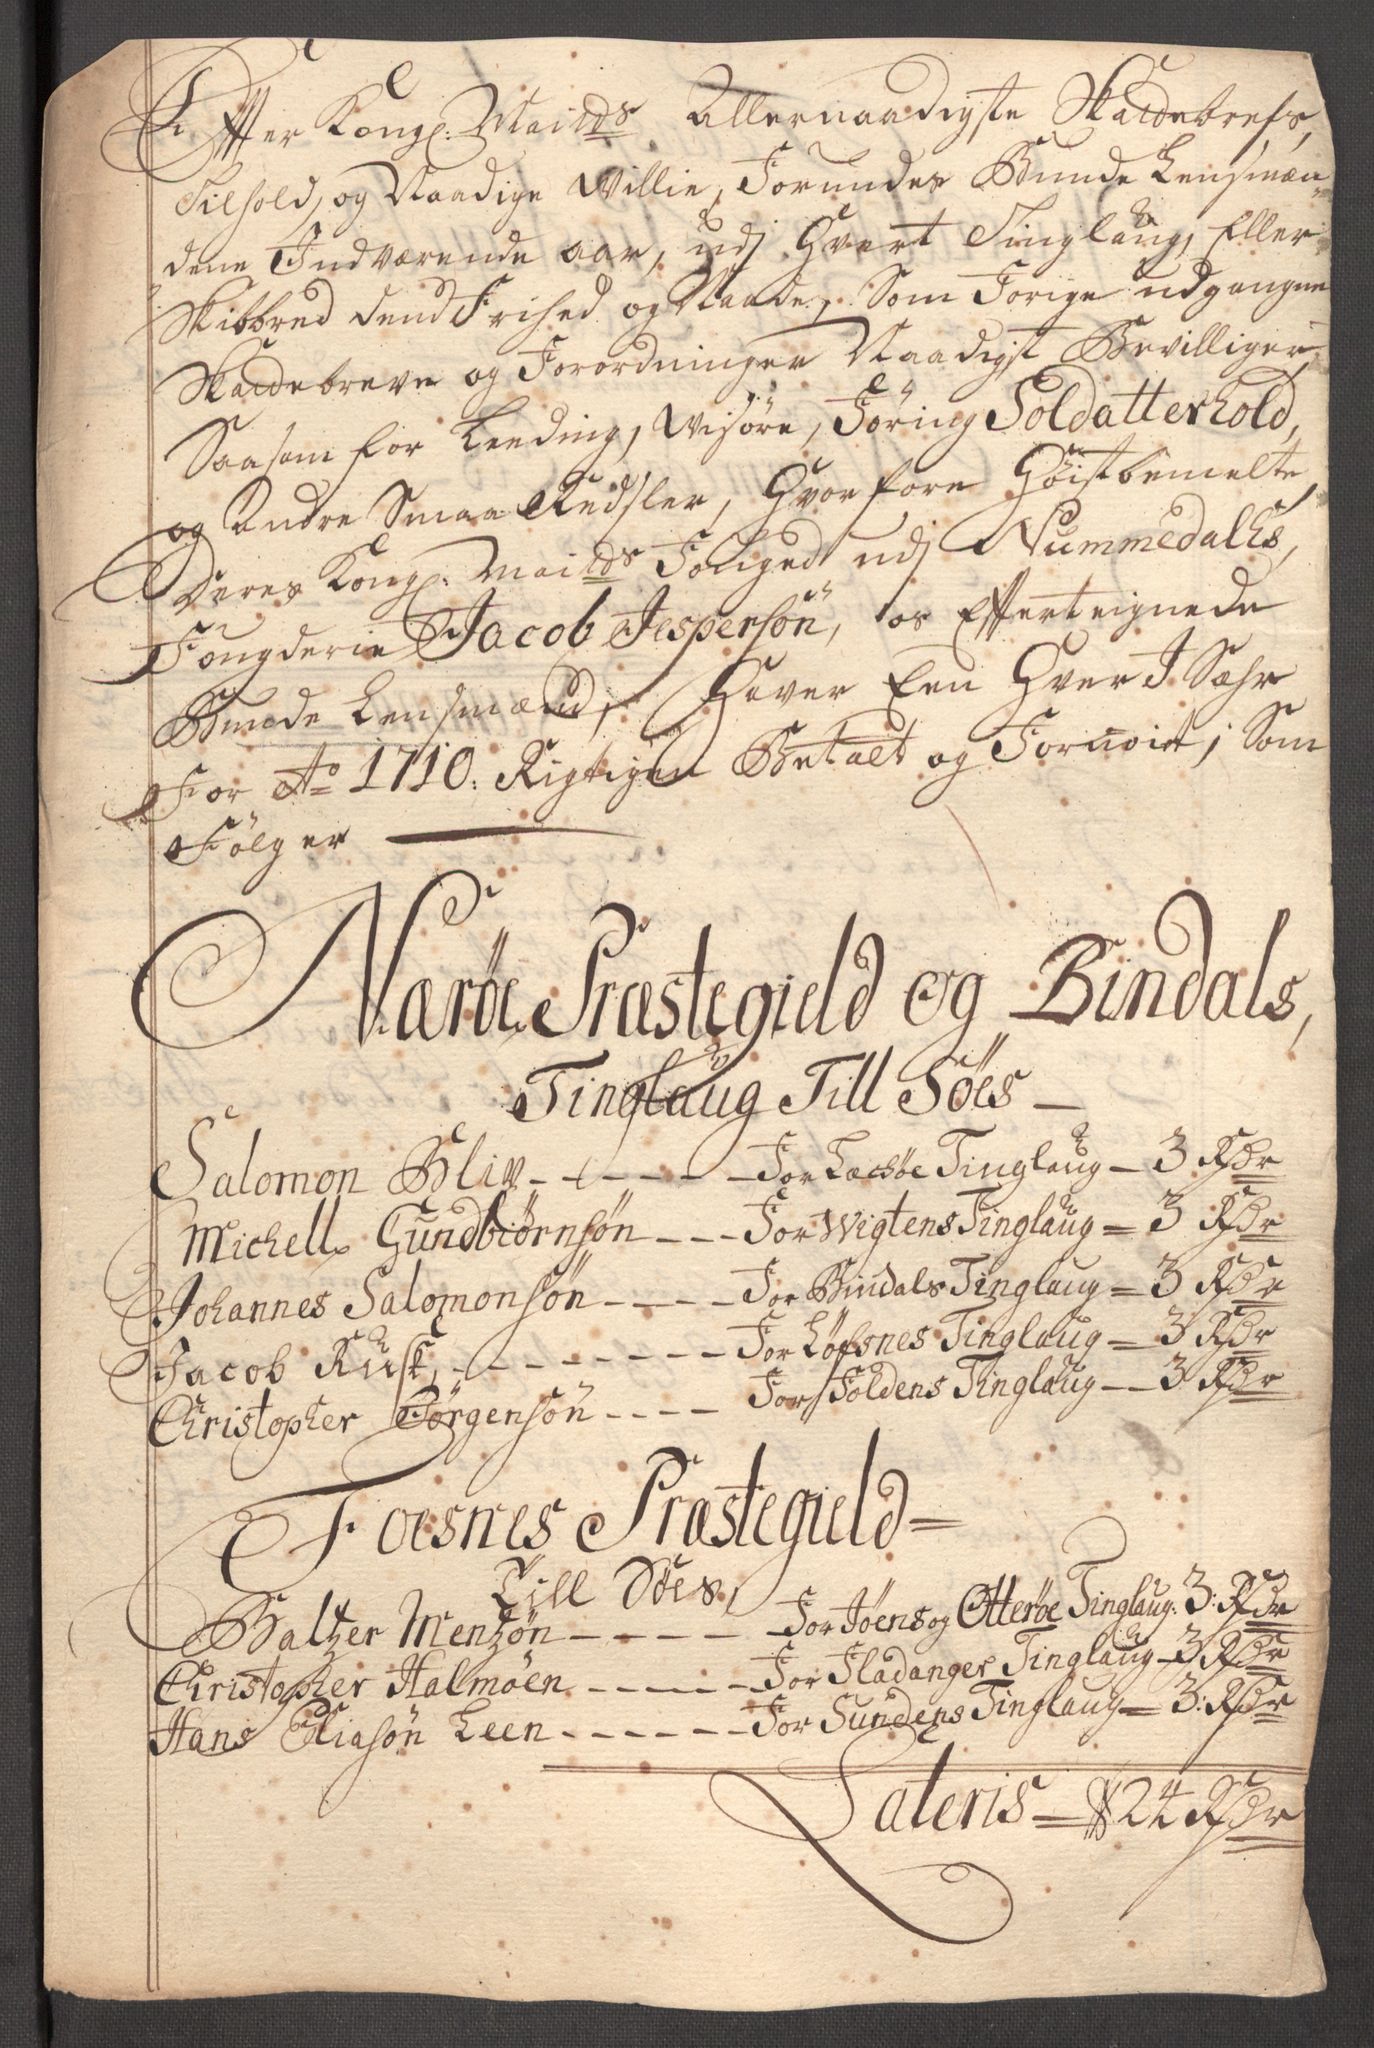 Effter Kongl: Maitds Allernaadigste Skattebrefs,
Tilhold, og Naadige Willie, Forundes Bunde Lensmæn
dene Indværende aar, udj Hvert Tinglaug, Eller
Skibbred dend Frihed og Naade, Som Forige udgangne
Skattebreve og Forordninger Naadigst Bevilliger,
Saasom for Leeding, Wisøre, Föring Soldatterhold,
og Andre Smaa Redsler, Hvorfore Høistbemelte
Deres Kongl: Maitds Fouged udj Nummedalhs,
Fougderie Jacob Jespersön, os Effterteignede
Bunde Lensmænd, Haver Een Hver I Sæhr
For Ao 1710. Rigtigen Betalt og Fornøiet, Som
Fölger
Næröe Præstegield og Bindals,
Tinglaug Till Söes
Salomon Bliv - - - - - For Lechöe Tinglaug - 3 Rdr
Michell Gundbiörnsön - - - For Wigtens Tinglaug = 3 Rdr
Johannes Salomonsön - - - - - For Bindals Tinglaug = 3 Rdr
Jacob Rusk - - - - - - - - For Löfsnes Tinglaug = 3 Rdr
Christopher Jörgensön - - - - For Foldens Tinglaug - 3 Rdr
Foesnes Præstegield =
Till Söes,
Baltzer Mentzön - - - - - For Jöens og Otteröe Tinglaug: 3: Rdr
Christopher Halmöen - - - - - For Fladanger Tinglaug - 3 Rdr
Hans Eliasön Leen - - - - - - For Sundens Tinglaug = 3: Rdr
Lateris = 24 Rdr